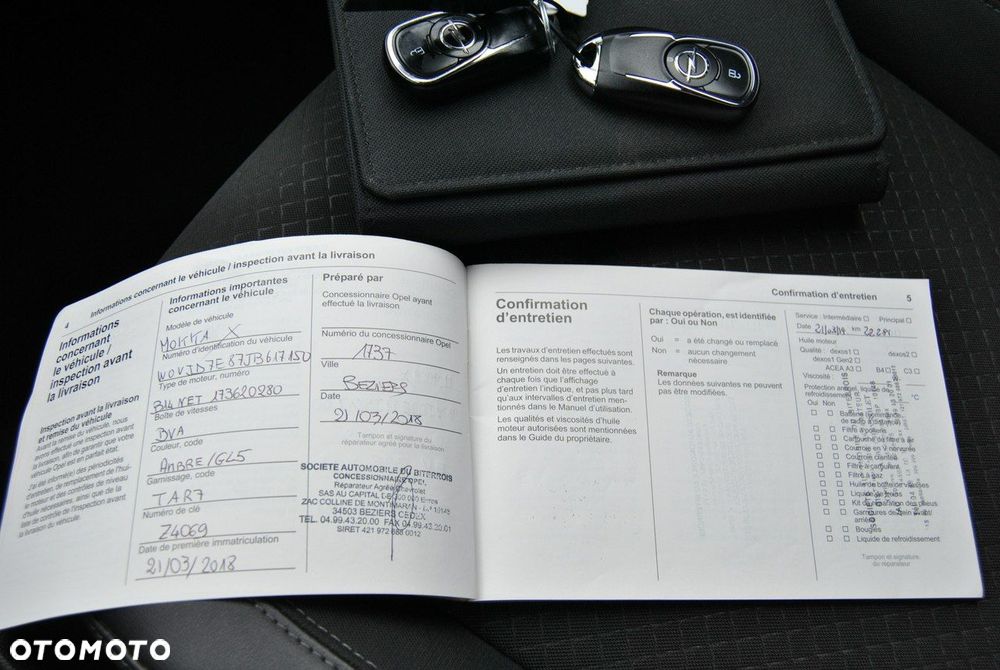 4 Informations concernant le véhicule / inspection avant la livraison
Informations
concernant
le véhicule /
inspection avant
la livraison
Inspection avant la livraison
et remise du véhicule
Avant la remise du véhicule, nous
avons effectué une inspection avant
la livraison, afin de garantir que votre
véhicule Opel est en parfait état.
J'ai été informé(e) des périodicités
d'entretien, de remplacement de l'hui-
le moteur et des contrôles de niveau
d'huile nécessaires, ainsi que de la
liste de contrôle de l'inspection avant
la livraison du véhicule.
Informations importantes
concernant le véhicule
Modèle de véhicule
MOKKA X
Numéro d'identification du véhicule
W0VJD7E87JB617150
Type de moteur, numéro
B14NET 173620280
Boîte de vitesses
BVA
Couleur, code
AMBRE/GL5
Garnissage, code
TAR7
Numéro de clé
Z4069
Date de première immatriculation
21/03/2018
Préparé par
Concessionnaire Opel ayant
effectué la livraison
Numéro du concessionnaire Opel
1737
Ville
BEZIERS
Date
21/03/2018
Tampon et signature du
réparateur agréé pour la livraison
SOCIETE AUTOMOBILE DU BITERROIS
CONCESSIONNAIRE OPEL
Réparateur Agréé Chevrolet
SAS AU CAPITAL
ZAC COLLINE DE MONTIMARAN
34503 BEZIERS CEDEX
TEL. 04.99.43.20.00 FAX 04.99.43.20.01
SIRET 421 972 688 0012
Confirmation d'entretien 5
Confirmation
d'entretien
Les travaux d'entretien effectués sont
renseignés dans les pages suivantes.
Un entretien doit être effectué à
chaque fois que l'affichage
d'entretien l'indique, et pas plus tard
qu'aux intervalles d'entretien men-
tionnés dans le Manuel d'utilisation.
Les qualités et viscosités d'huile
moteur autorisées sont mentionnées
dans le Guide du propriétaire.
Chaque opération, est identifiée
par : Oui ou Non
Oui = a été changé ou remplacé
Non = aucun changement
nécessaire
Remarque
Les données suivantes ne peuvent
pas être modifiées.
Service : Intermédiaire Principal
Date km
Huile moteur
Qualité : dexos1 dexos2
dexos1 Gen2
ACEA A3 B4 C3
Viscosité :
Protection antigel, liquide de
refroidissement °C
Oui Non
Batterie (commande
de radio à distance)
Filtre à pollens
Cartouche de filtre à air
Courroie en V nervurée
Courroie crantée
Filtre à carburant
Filtre à gaz
Huile de boîte de vitesses
Liquide de freins
Kit de réparation des pneus
Garnitures de frein avant/
arrière
Bougies
Liquide de refroidissement
Tampon et signature
du réparateur
OTOMOTO